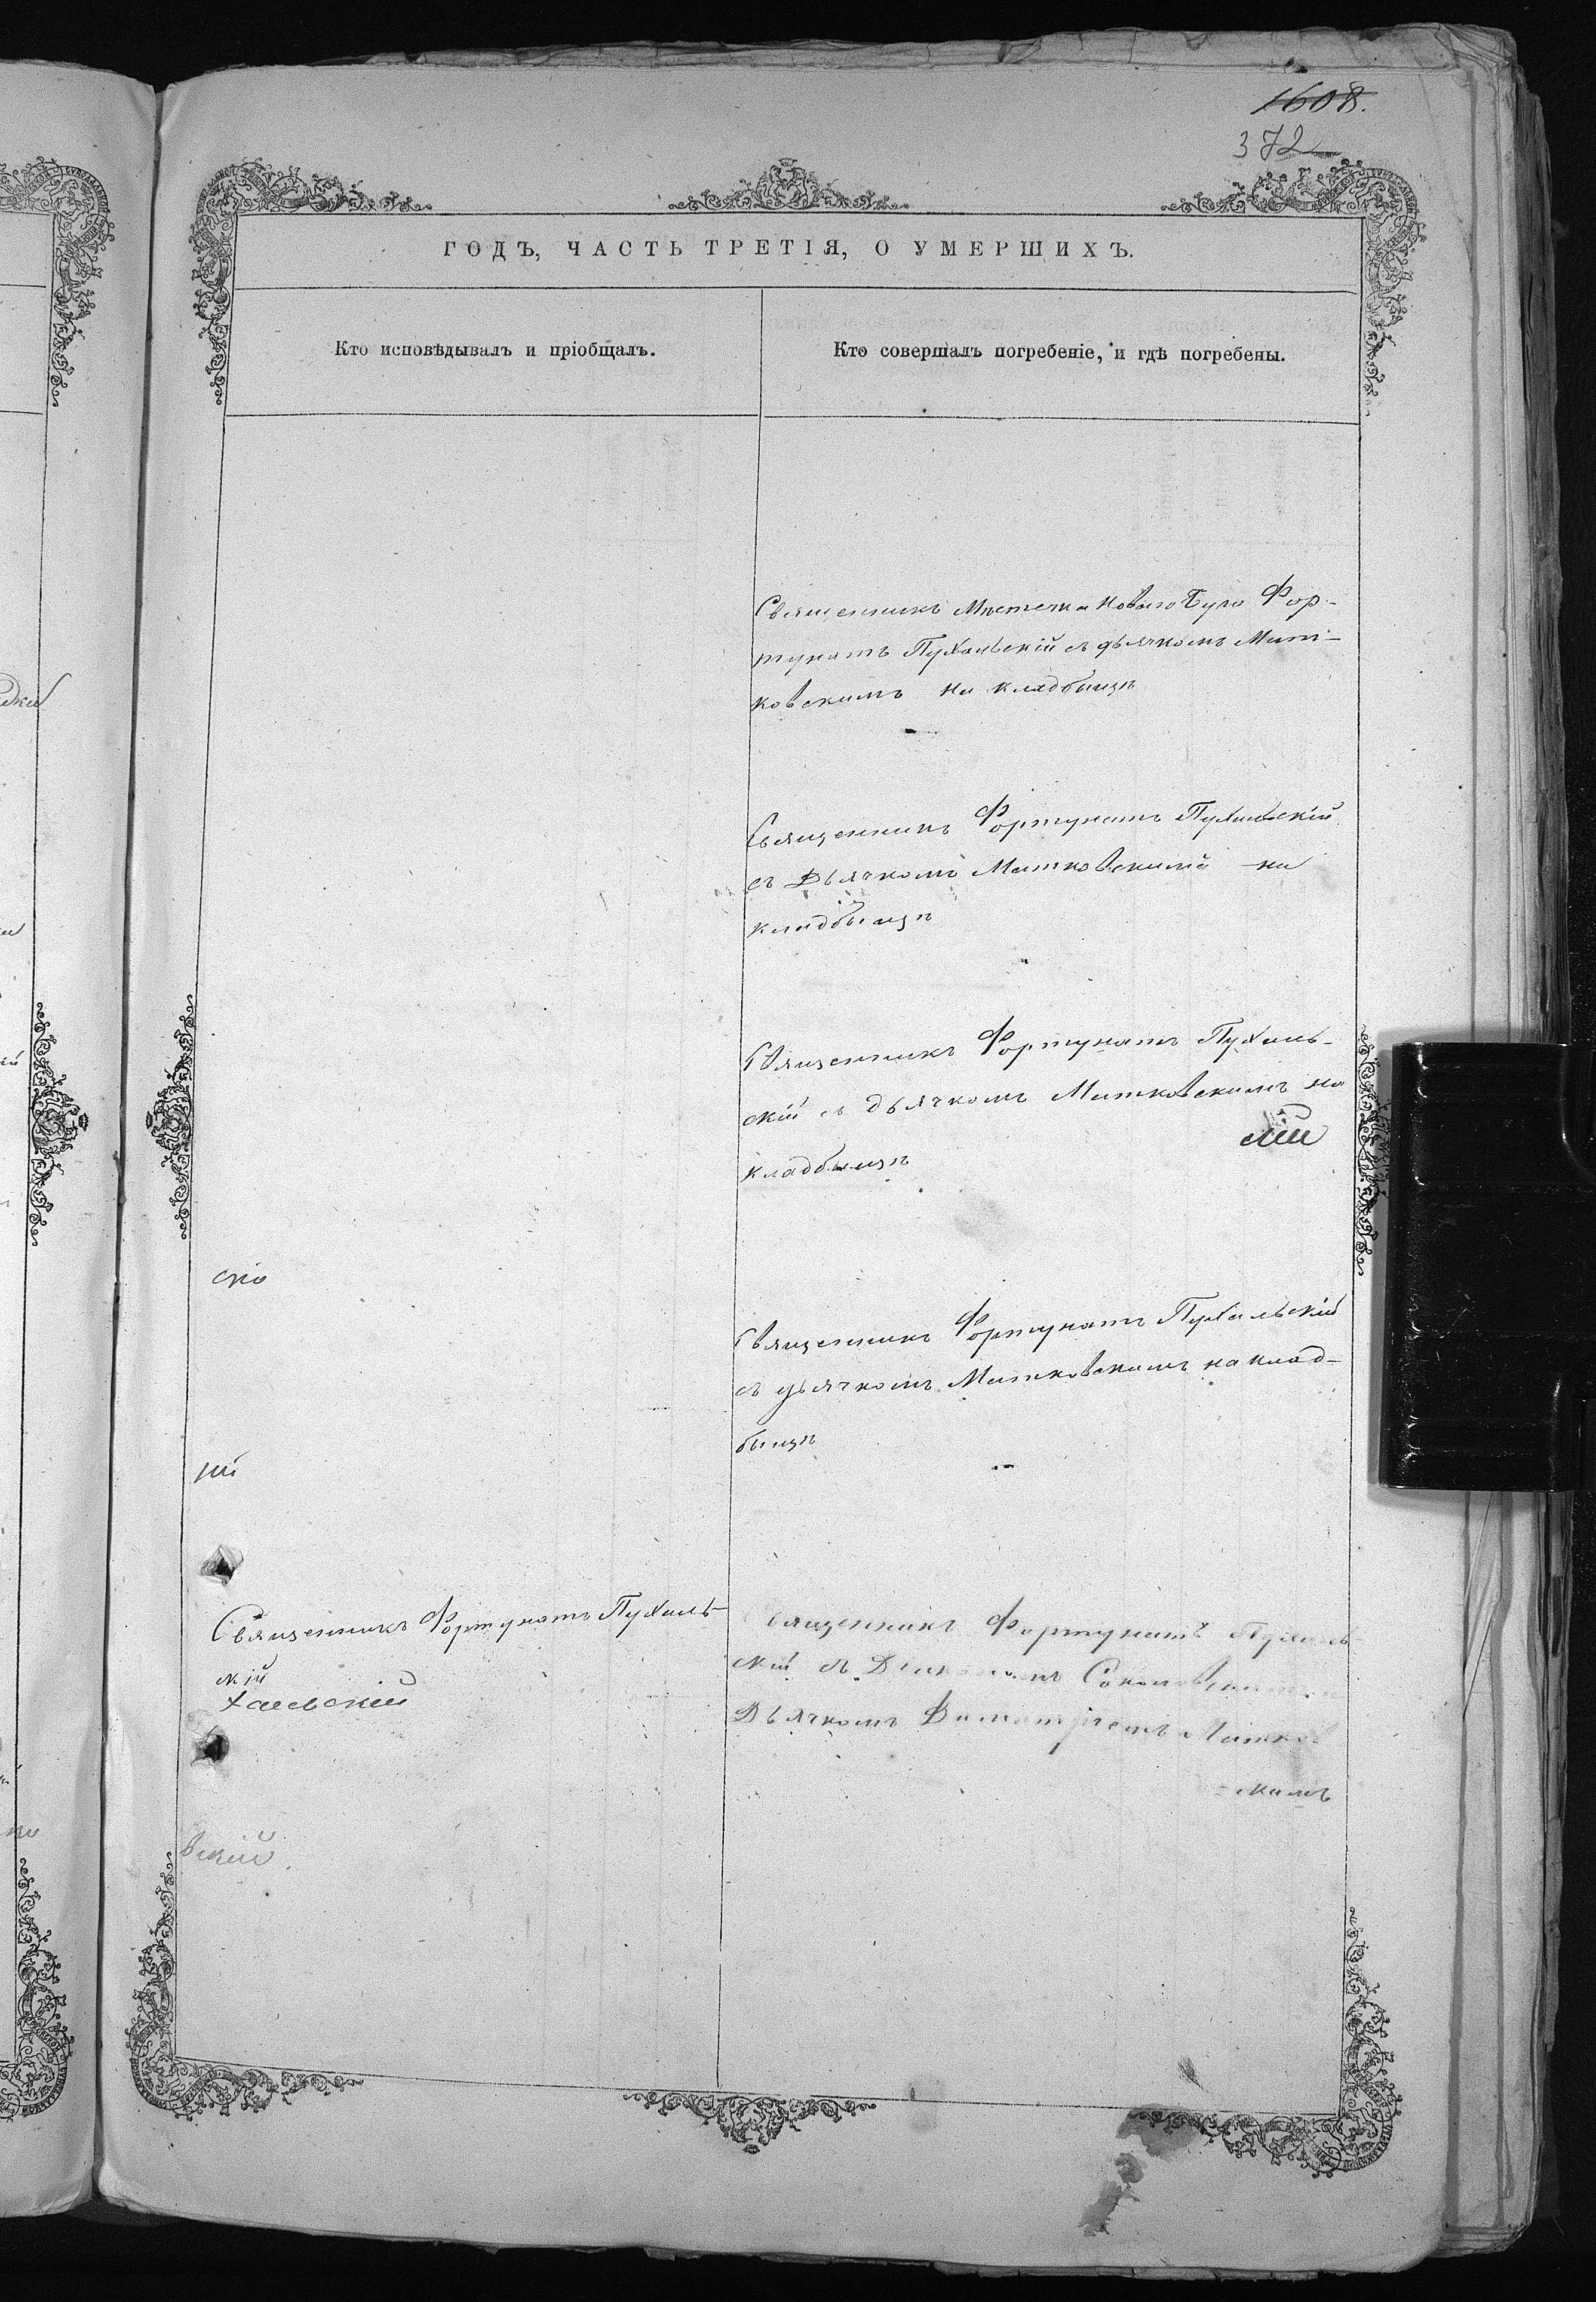 1608.
372
ГОДЪ, ЧАСТЬ ТРЕТІЯ, О УМЕРШИХЪ.
Кто исповѣдывалъ и пріобщалъ.
Кто совершалъ погребеніе, и гдѣ погребены.
Священникъ Мѣстечка Новаго Буга Фор-
тунатъ Пухальскій съ дьячкомъ Мит-
ковскимъ на кладбищѣ
Священникъ Фортунатъ Пухальскій
съ Дьячкомъ Митковскимъ на
кладбищѣ
Священникъ Фортунатъ Пухаль-
скій съ дьячкомъ Митковскимъ на
кладбищѣ
Священникъ Фортунатъ Пухальскій
съ дьячкомъ Митковскимъ на клад-
бищѣ
Священникъ Фортунатъ Пухаль-
скій
хальскій
Священникъ Фортунатъ Пухаль-
скій съ Діакономъ Соколовскимъ и
Дьячкомъ Димитріемъ Митков
скимъ
вскій